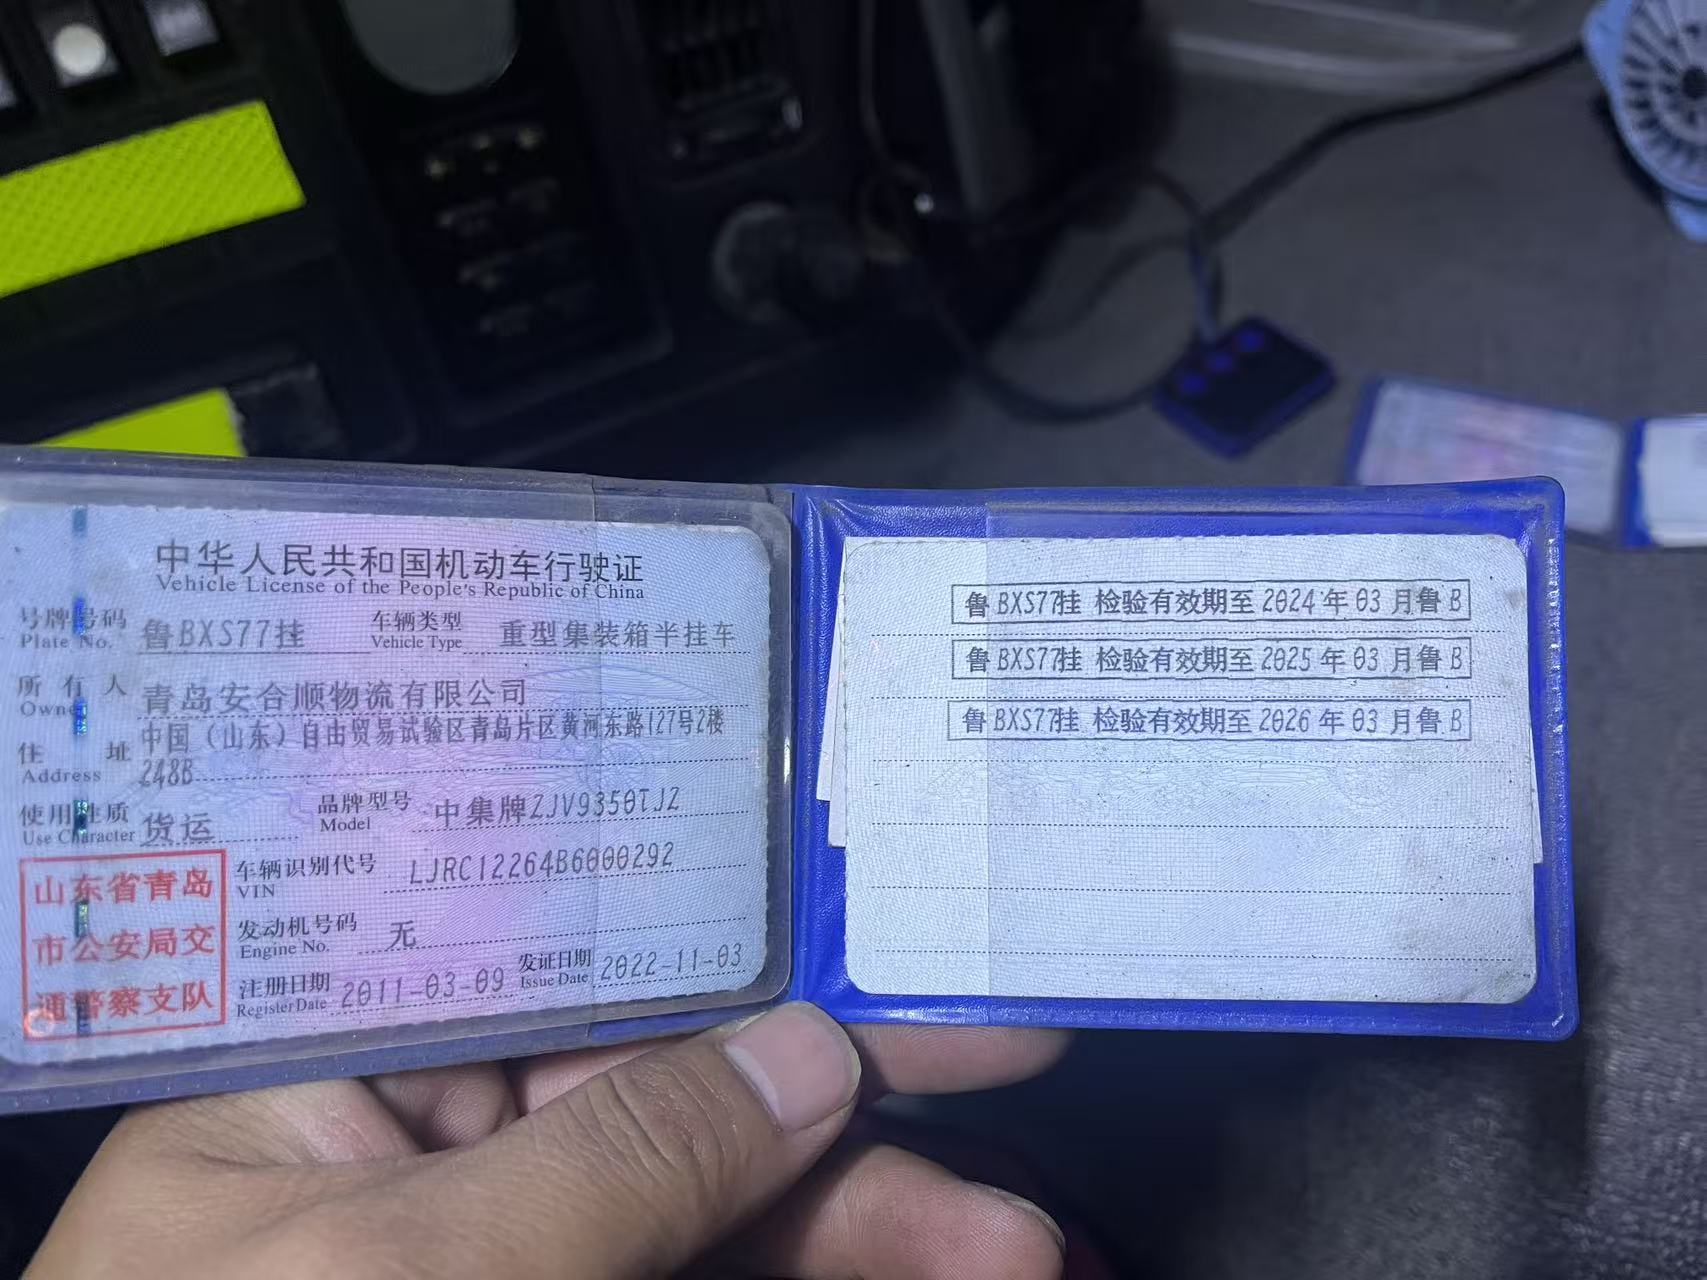 中华人民共和国机动车行驶证
Vehicle License of the People's Republic of China
号牌号码 鲁BXS77挂 车辆类型 重型集装箱半挂车
Plate No. Vehicle Type
所有人 青岛安合顺物流有限公司
Owner
住址 中国（山东）自由贸易试验区青岛片区黄河东路127号2楼
Address 248B
使用性质 货运 品牌型号 中集牌ZJV9350TJZ
Use Character Model
车辆识别代号 LJRC12264B6000292
VIN
发动机号码 无
Engine No.
注册日期 2011-03-09 发证日期 2022-11-03
Register Date Issue Date
山东省青岛
市公安局交
通警察支队
鲁BXS77挂 检验有效期至2024年03月鲁B
鲁BXS77挂 检验有效期至2025年03月鲁B
鲁BXS77挂 检验有效期至2026年03月鲁B